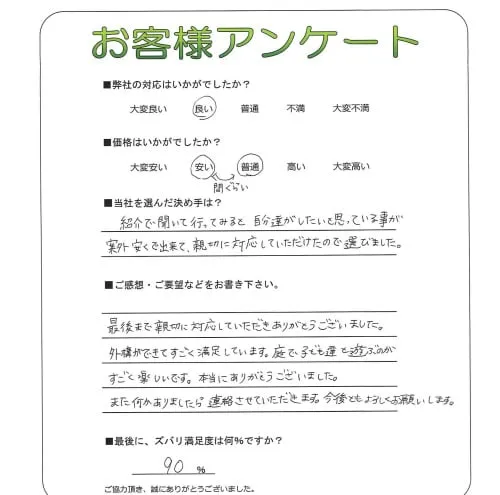 お客様アンケート
■弊社の対応はいかがでしたか？
大変良い 良い 普通 不満 大変不満
■価格はいかがでしたか？
大変安い 安い 普通 高い 大変高い
間ぐらい
■当社を選んだ決め手は？
紹介で聞いて行ってみると 自分達がしたいと思っている事が
案外安くで出来て、親切に対応していただけたので選びました。
■ご感想・ご要望などをお書き下さい。
最後まで親切に対応していただきありがとうございました。
外構ができてすごく満足しています。庭で子ども達と遊ぶのが
すごく楽しいです。本当にありがとうございました。
また何かありましたら連絡させていただきます。今後ともよろしくお願いします。
■最後に、ズバリ満足度は何％ですか？
90 ％
ご協力頂き、誠にありがとうございました。